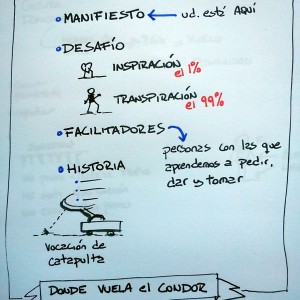 • MANIFIESTO ← ud. está AQUÍ
• DESAFÍO
INSPIRACIÓN
el 1%
TRANSPIRACIÓN
el 99%
• FACILITADORES
personas con las que
aprendemos a pedir,
dar y tomar
• HISTORIA
vocación de
catapulta
DONDE VUELA el CONDOR